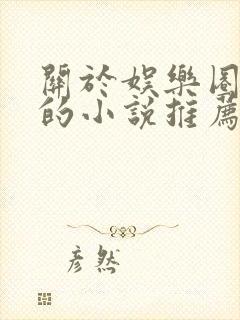 關於娛樂圈
的小說推薦
彥然